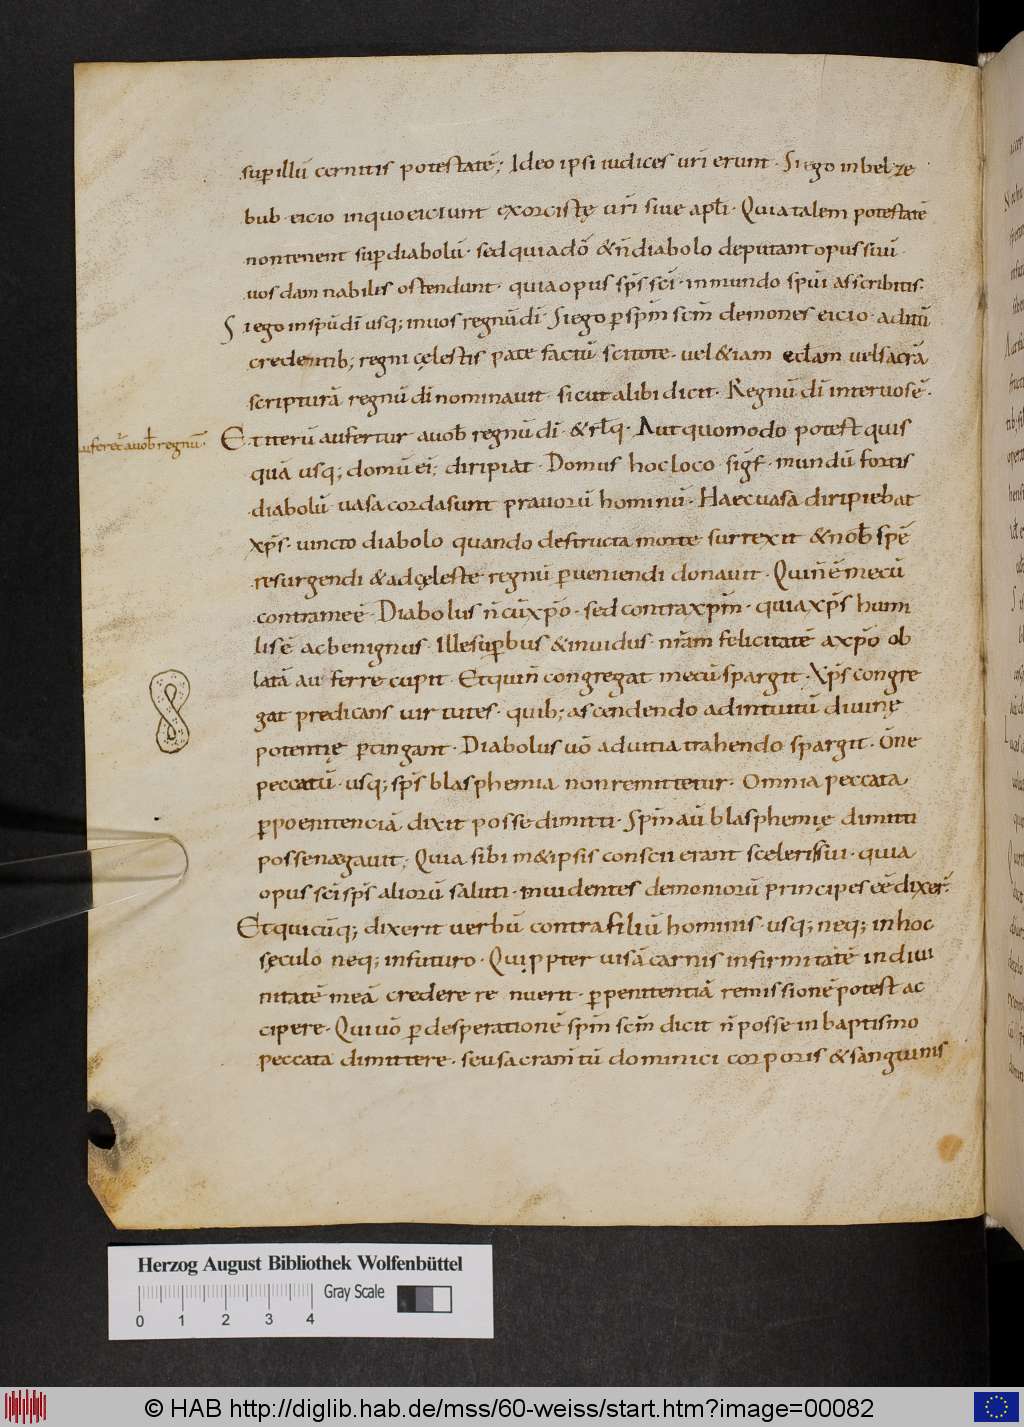 sup illū cernitis potestatē; Ideo ipsi iudices uri erunt · Si ego in belze
bub · eicio inquo eiciunt exorcistę uri siue apl̄i · Quia talem potestatē
non tenent sup diabolū · sed quia dō & n̄ diabolo deputant opus suū ·
uos damnabilis ostendunt · quia opus sp̄s sc̄i · inmundo spūi asscribitis ·
Si ego in spū dī usq; in uos regnū dī · Si ego p sp̄m sc̄m demones eicio · aditū
credentib; regni cęlestis patefactū scitote · uel &iam eccl̄am uel sacrā
scripturā regnū dī nominauit · sicut alibi dicit · Regnū dī inter uos ē ·
auferet̄ a uob̄ regnū · Et iterū aufertur a uob̄ regnū dī · & rl̄q · Aut quomodo potest quis
quā usq; domū ei; diripiat · Domus hoc loco sigf̄ · mundū fortis
diabolū · uasa corda sunt prauorū hominū · Haec uasa diripiebat
xp̄s · uincto diabolo quando destructa morte surrexit & nob̄ spē
resurgendi & ad cęleste regnū pueniendi donauit · Qui n̄ ē mecū
contra me ē · Diabolus n̄ cū xp̄o · sed contra xp̄m · quia xp̄s humi
lis ē ac benignus · Ille supbus & inuidus · nr̄am felicitatē a xp̄o ob
latā auferre cupit · Et qui n̄ congregat mecū spargit · Xp̄s congre
gat predicans uirtutes · quib; ascendendo ad intuitū diuinę
potentię ptingant · Diabolus uō ad uitia trahendo spargit · Ōne
peccatū · usq; sp̄s blasphemia non remittetur · Omnia peccata
p poenitenciā dixit posse dimitti · Sp̄m aū blasphemię dimitti
posse nægauit; Quia sibi m&ipsis conscii erant sceleris sui · quia
opus sc̄i sp̄s aliorū saluti · inuidentes demoniorū principes eē dixer̄ ·
Et quicūq; dixerit uerbū contra filiū hominis · usq; neq; in hoc
sęculo neq; in futuro · Qui ppter uisā carnis infirmitatē in diui
nitatē meā credere renuerit · p penitentiā remissionē potest ac
cipere · Qui uō p desperationē sp̄m sc̄m dicit n̄ posse in baptismo
peccata dimittere · seu sacram̄tū dominici corporis & sanguinis
Herzog August Bibliothek Wolfenbüttel
Gray Scale
0 1 2 3 4
© HAB http://diglib.hab.de/mss/60-weiss/start.htm?image=00082